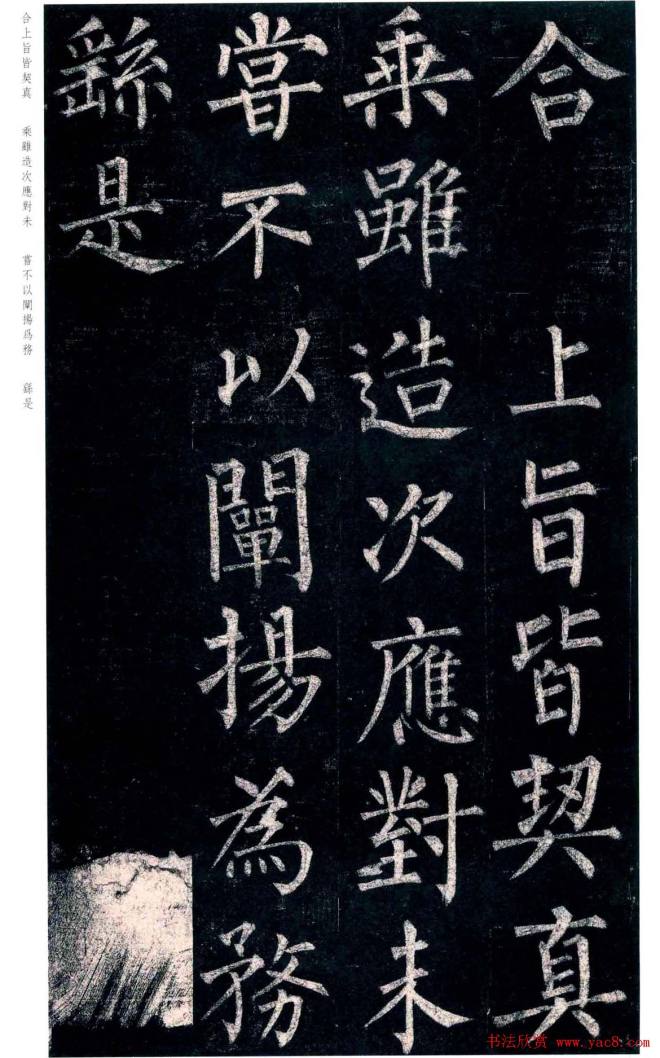 合 上旨皆契真
乘雖造次應對未
嘗不以闡揚為務
繇是
合上旨皆契真 乘雖造次應對未 嘗不以闡揚爲務 繇是
书法欣赏 www.yac8.com